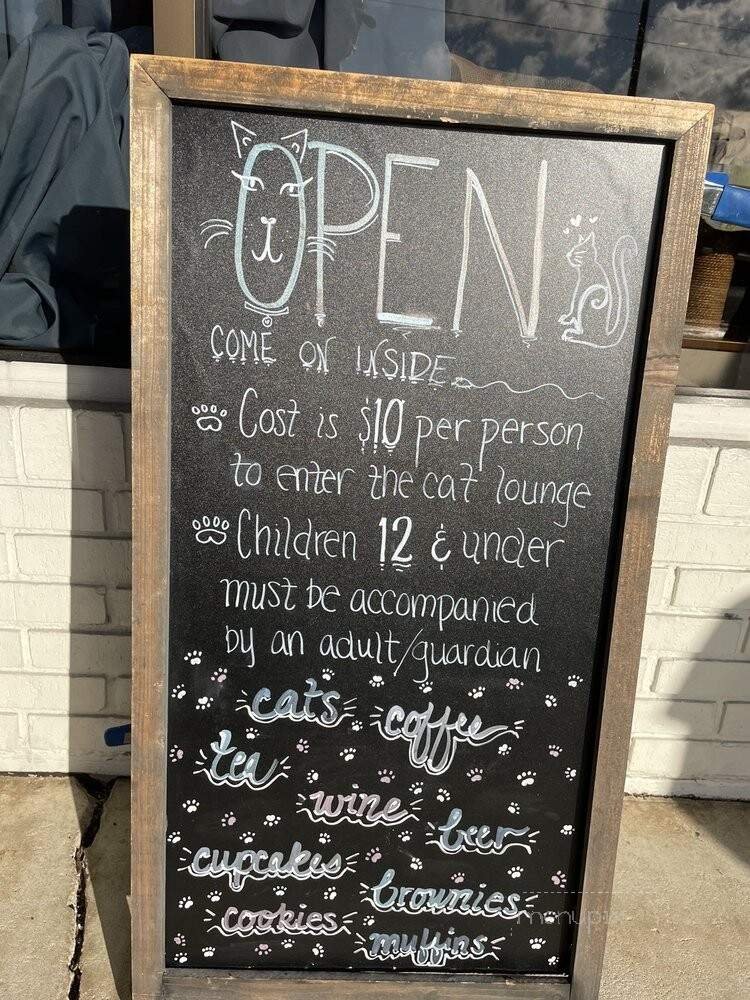 OPEN
COME ON INSIDE
Cost is $10 per person
to enter the cat lounge
Children 12 & under
must be accompanied
by an adult/guardian
cats coffee
tea
wine
beer
cupcakes
brownies
cookies
muffins
menupix